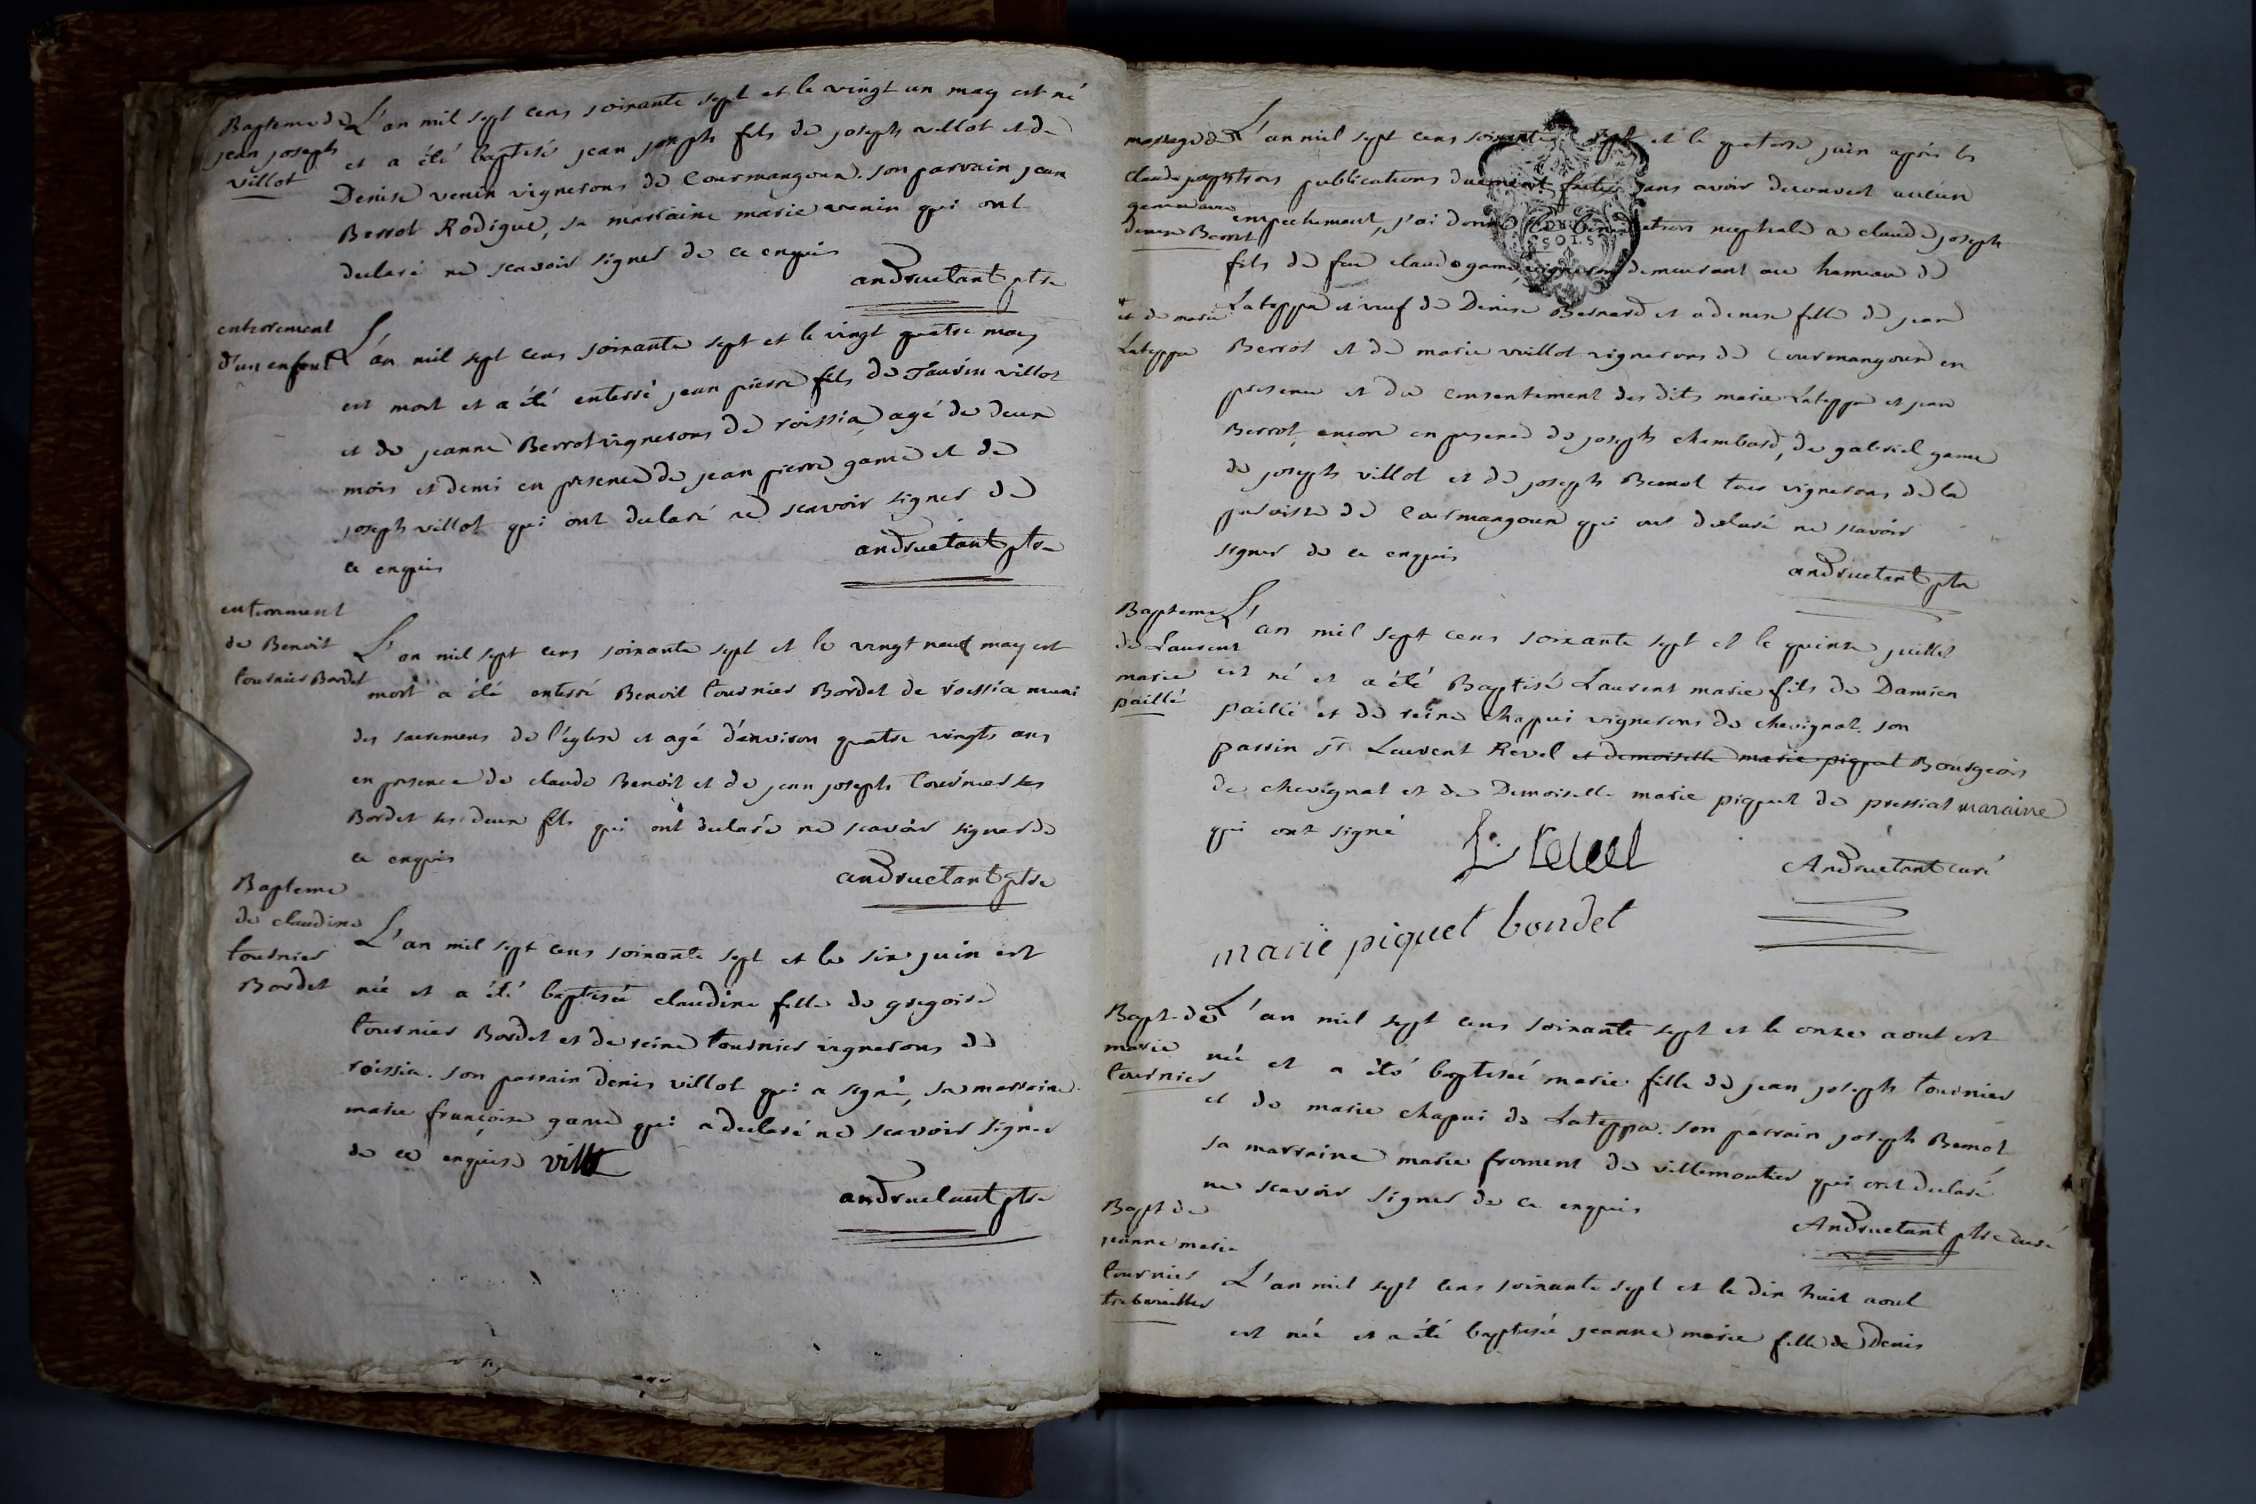 Bapteme de
jean joseph
villot
L'an mil sept cens soixante sept et le vingt un may est né
et a été baptisé jean joseph fils de joseph villot et de
Denise venin vignerons de Courmangoux. son parrain jean
Berrot Rodigue, sa marraine marie venin qui ont
declaré ne scavoir signer de ce enquis
andruetant ptre
enterrement
d'un enfant
L'an mil sept cens soixante sept et le vingt quatre may
est mort et a été enterré jean pierre fils de Taurin villot
et de jeanne Berrot vignerons de roissia agé de deux
mois et demi en presence de jean pierre game et de
joseph villot qui ont declaré ne scavoir signer de
ce enquis
andruetant ptre
enterrement
de Benoit
tournier Bordet
L'an mil sept cens soixante sept et le vingt neuf may est
mort a été enterré Benoit tournier Bordet de roissia muni
des sacremens de l'église et agé d'environ quatre vingts ans
en presence de claude Benoit et de jean joseph tournier
Bordet ses deux fils qui ont declaré ne scavoir signer de
ce enquis
andruetant ptre
Bapteme
de claudine
tournier
Bordet
L'an mil sept cens soixante sept et le six juin est
née et a été baptisée claudine fille de gregoire
tournier Bordet et de reine tournier vignerons de
roissia. son parrain denis villot qui a signé, sa marraine
marie françoise game qui a declaré ne scavoir signer
de ce enquise villot
andruetant ptre
mariage de
claude joseph
game avec
denise Berrot
L'an mil sept cens soixante sept et le quatorze juin après les
trois publications duement faites sans avoir decouvert aucun
empechement, j'ai donné la benediction nuptiale a claude joseph
fils de feu claude game vigneron demeurant au hameau de
et de marie
Lateppe
Lateppe et veuf de Denise Bernard et a denise fille de jean
Berrot et de marie vuillot vignerons de Courmangoux en
presence et du consentement des dits marie Lateppe et jean
Berrot, encore en presence de joseph chambard, de gabriel game
de joseph villot et de joseph Bemot tous vignerons de la
paroisse de Courmangoux qui ont declaré ne scavoir
signer de ce enquis
andruetant ptre
Bapteme
de Laurent
marie
paillé
L'an mil sept cens soixante sept et le quinze juillet
est né et a été Baptisé Laurent marie fils de Damien
paillé et de reine chapui vignerons de chevignat. son
parrin sr Laurent Revel et demoiselle marie piquet Bourgeois
de chevignat et de Demoiselle marie piquet de pressiat maraine
qui ont signé
L. Revel
Andruetant curé
marie piquet bondet
Bapt. de
marie
tournier
L'an mil sept cens soixante sept et le onze aout est
née et a été baptisée marie fille de jean joseph tournier
et de marie chapui de Lateppe. son parrain joseph Bemot
sa marraine marie froment de villemoutier qui ont declaré
ne scavoir signer de ce enquis
Andruetant ptre curé
Bapt de
jeanne marie
tournier
L'an mil sept cens soixante sept et le dix huit aout
est née et a été baptisée jeanne marie fille de Denis